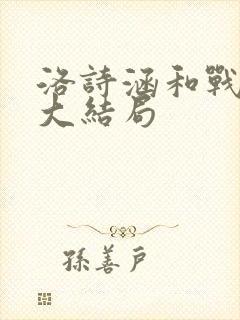 洛詩涵和戰
大結局
孫善戶